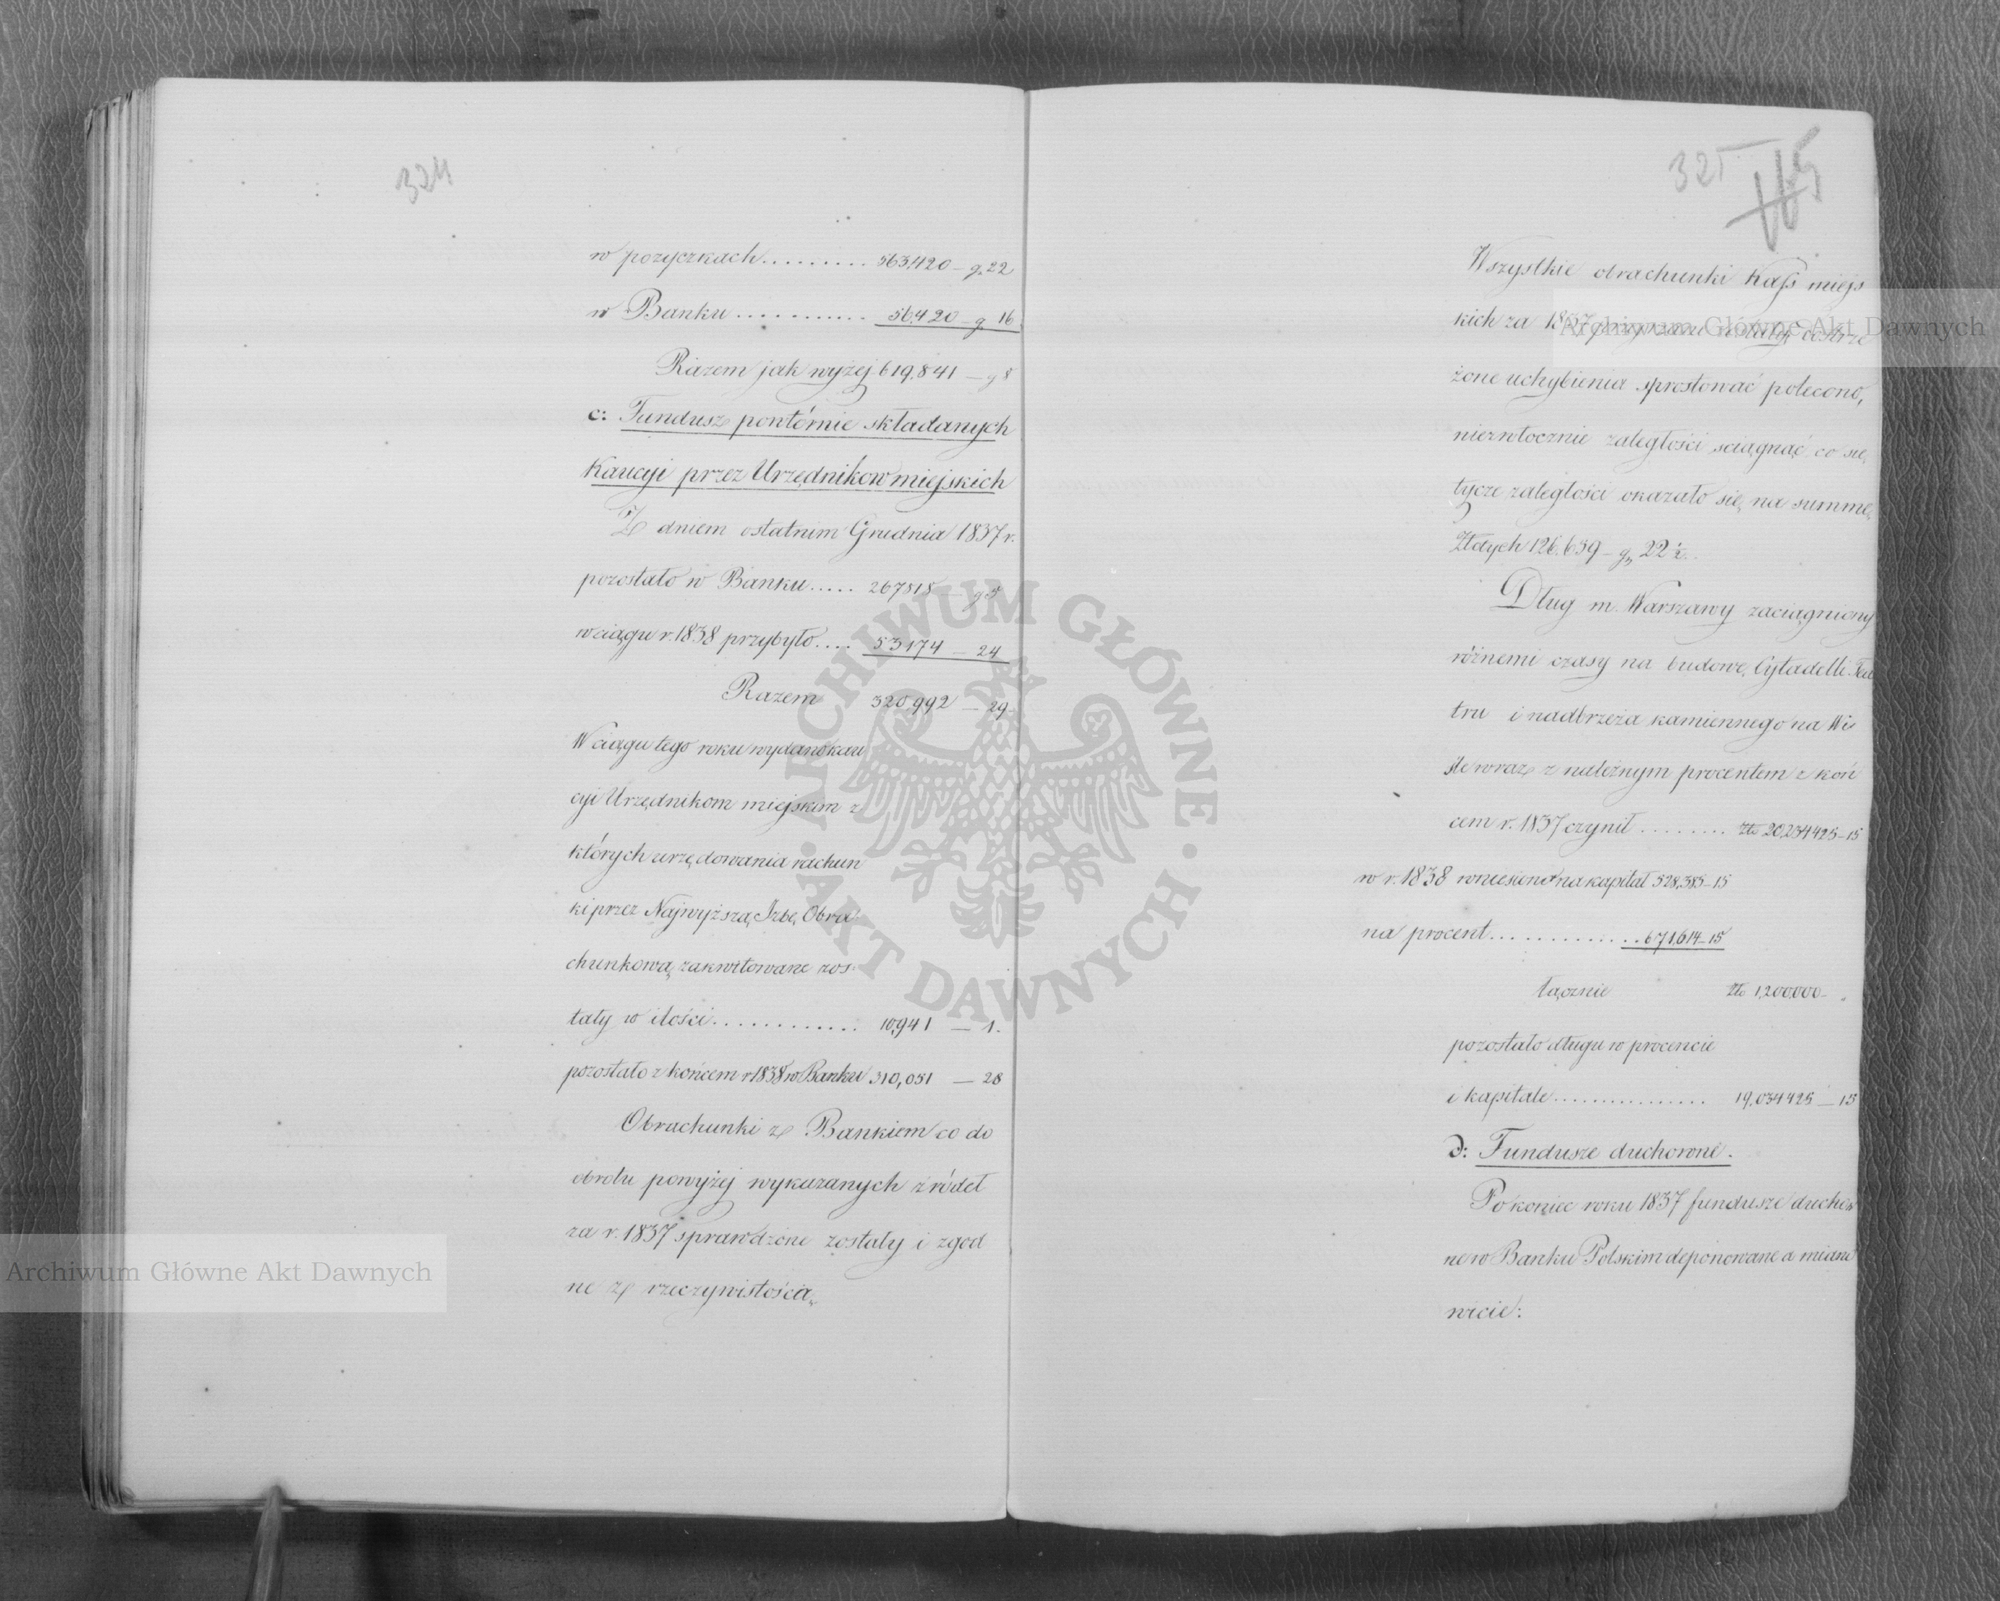 324
w pożyczkach ......... 563,420 – g. 22
w Banku ........... 56,420 – g. 16
Razem jak wyżej 619,841 – g 8
c: Fundusz powtórnie składanych
Kaucyi przez Urzędnikow miejskich
Z dniem ostatnim Grudnia 1837 r.
pozostało w Banku ..... 267818 – g 5
w ciągu r. 1838 przybyło .... 53174 – 24
Razem 320992 – 29
W ciągu tego roku wydano kau
cyi Urzędnikom miejskim z
których urzędowania rachun
ki przez Najwyższą Izbę Obra
chunkową zakwitowane zos-
tały w ilości ............. 10,941 – 1.
pozostało z końcem r 1838 w Banku 310,051 – 28
Obrachunki z Bankiem co do
obrotu powyżej wykazanych źródeł
za r. 1837 sprawdzone zostały i zgod
ne z rzeczywistością.
325
115
Wszystkie obrachunki Kass miejs
kich za 1837 przejrzano dostrze
żone uchybienia sprostować polecono,
niezwłocznie zaległości sciągnąć co się
tycze zaległości okazało się na summę
Złotych 126.639 – g. 22 ½.
Dług m. Warszawy zaciągniony
różnemi czasy na budowę Cytadelli Tea
tru i nadbrzeża kamiennego na Wi-
śle wraz z należnym procentem z koń
cem r. 1837 czynił ........ złp 20,234425–15
w r. 1838 wniesiono na kapitał 528,385–15
na procent .............. 671,614–15
łącznie złp 1,200,000 –
pozostało długu w procencie
i kapitale ................ 19,034425 – 15
D: Fundusze duchowne.
Po koniec roku 1837 fundusze duchow
ne w Banku Polskim deponowane a miano
wicie:
Archiwum Główne Akt Dawnych
Archiwum Główne Akt Dawnych
ARCHIWUM GŁÓWNE · AKT DAWNYCH ·